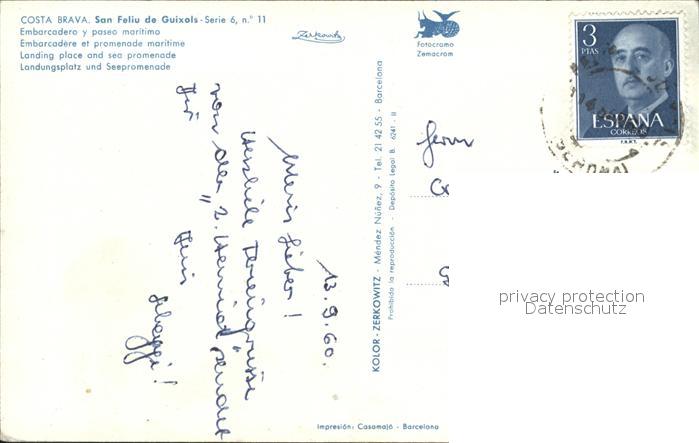 COSTA BRAVA. San Feliu de Guixols - Serie 6, n.° 11
Embarcadero y paseo marítimo
Embarcadère et promenade maritime
Landing place and sea promenade
Landungsplatz und Seepromenade
Zerkowitz
Fotocromo
Zemacrom
3
PTAS
ESPAÑA
CORREOS
F.N.M.T.
13.9.60.
Lieber!
Herzliche Feriengrüsse
von der "2. Heimat" sendet
Dir
KOLOR-ZERKOWITZ - Méndez Núñez, 9 - Tel. 21 42 55 - Barcelona
Prohibida la reproducción - Depósito Legal B. 6241 - II
Herrn
privacy protection
Datenschutz
Impresión: Casamajó - Barcelona